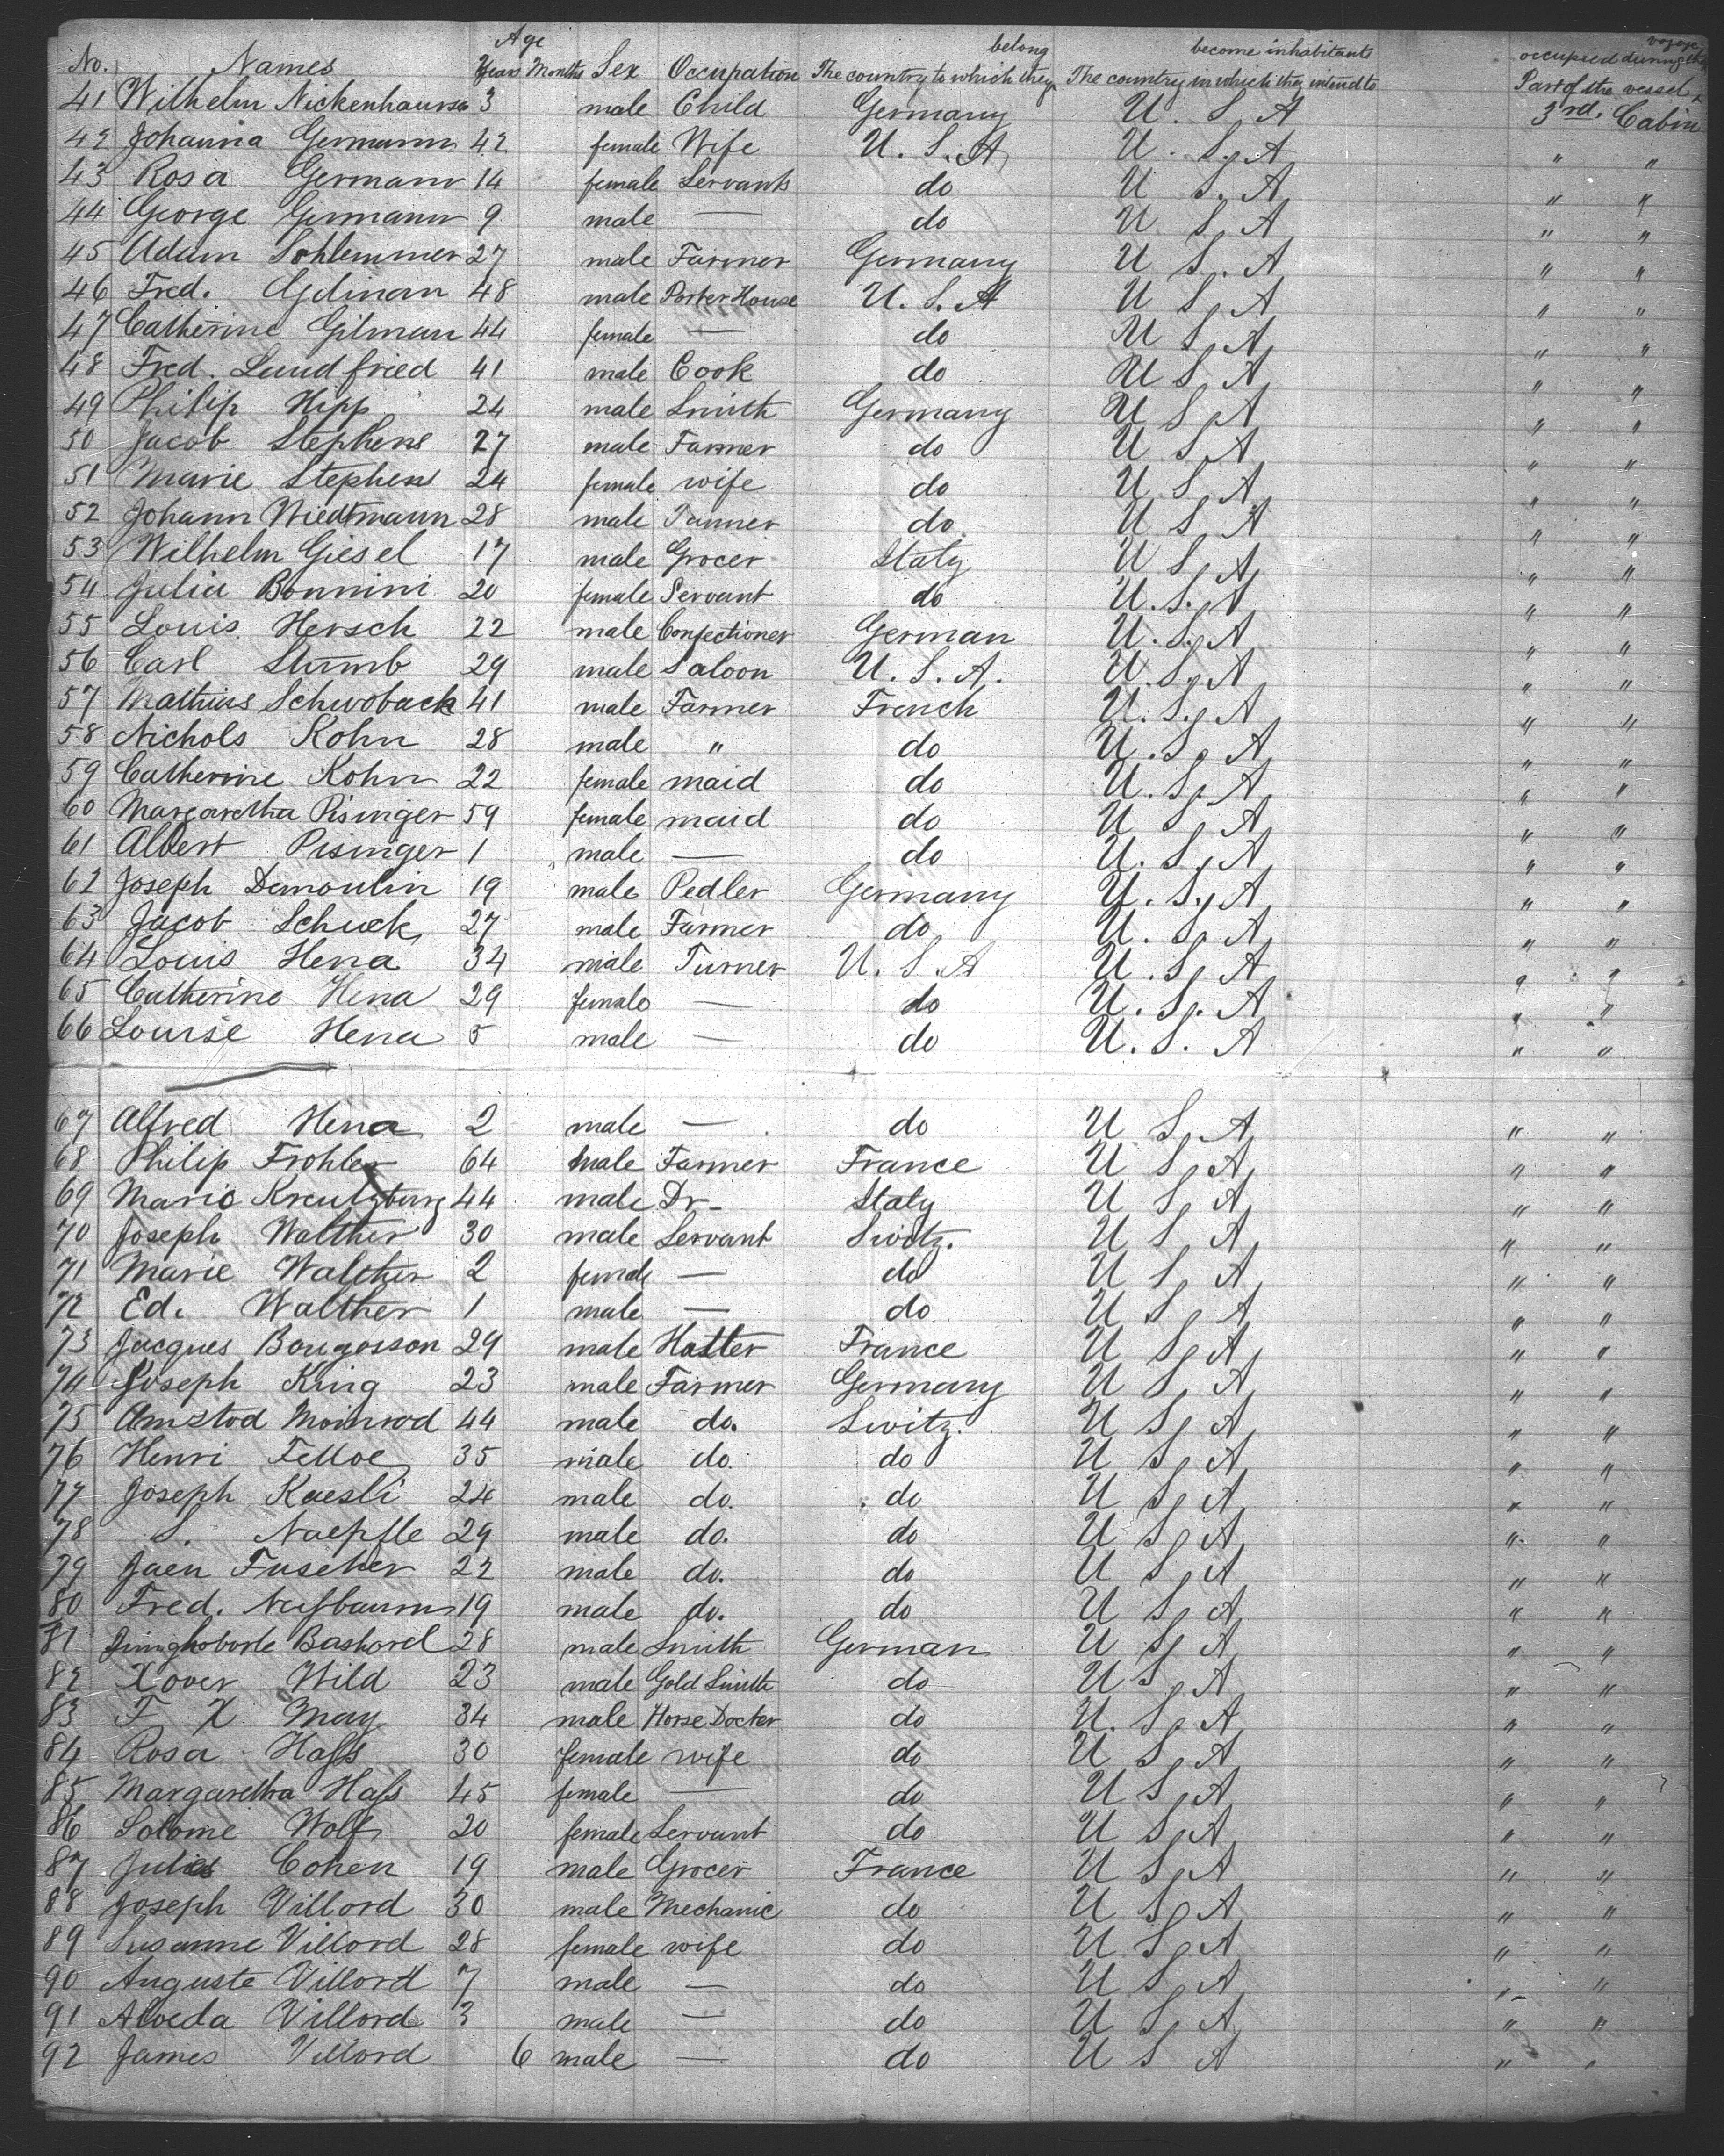 No. Names Age Years Months Sex Occupation The country to which they belong The country in which they intend to become inhabitants Part of the vessel occupied during the voyage
41 Wilhelm Nickenhauser 3 male Child Germany U. S. A 3rd. Cabin
42 Johanna Germann 42 female Wife U. S. A U. S. A " "
43 Rosa Germann 14 female Servants do U S. A " "
44 George Germann 9 male — do U S. A " "
45 Adam Schlemmer 27 male Farmer Germany U S. A " "
46 Fred. Gilman 48 male Porter House U. S. A U S. A " "
47 Catherine Gilman 44 female — do U S. A " "
48 Fred. Landfried 41 male Cook do U S. A " "
49 Philip Hipp 24 male Smith Germany U S. A " "
50 Jacob Stephens 27 male Farmer do U S A " "
51 Marie Stephens 24 female wife do U S. A " "
52 Johann Wiedtmann 28 male Tanner do U S. A " "
53 Wilhelm Giesel 17 male Grocer Italy U S. A " "
54 Julia Bonnini 20 female Servant do U. S. A " "
55 Louis Hersch 22 male Confectioner German U. S. A " "
56 Carl Stumb 29 male Saloon U. S. A. U. S. A " "
57 Mathias Schwoback 41 male Farmer French U. S. A " "
58 Nichols Kohn 28 male " do U. S. A " "
59 Catherine Kohn 22 female maid do U. S. A " "
60 Margaretha Pisinger 59 female maid do U S. A " "
61 Albert Pisinger 1 male — do U. S. A " "
62 Joseph Demoulin 19 male Pedler Germany U. S. A " "
63 Jacob Schuck 27 male Farmer do U. S. A " "
64 Louis Hena 34 male Turner U. S. A U. S. A " "
65 Catherine Hena 29 female — do U. S. A " "
66 Lourse Hena 5 male — do U. S. A " "
67 Alfred Hena 2 male — do U S. A " "
68 Philip Frohler 64 male Farmer France U S. A " "
69 Mario Kreutzburg 44 male Dr- Italy U S. A " "
70 Joseph Walther 30 male Servant Switz. U S. A " "
71 Marie Walther 2 female — do U S. A " "
72 Ed. Walther 1 male — do U S. A " "
73 Jacques Bougosson 29 male Hatter France U S. A " "
74 Joseph King 23 male Farmer Germany U S. A " "
75 Amstod Moinrod 44 male do. Switz. U S. A " "
76 Henri Felloe 35 male do. do U S. A " "
77 Joseph Kaesli 24 male do. do U S. A " "
78 S. Naepfle 29 male do. do U S. A " "
79 Jaen Fuscher 22 male do. do U S. A " "
80 Fred. Nussbaum 19 male do. do U S. A " "
81 Bashord 28 male Smith German U S. A " "
82 Xover Wild 23 male Gold Smith do U S. A " "
83 F X May 34 male Horse Docter do U. S. A " "
84 Rosa Hass 30 female wife do U S. A " "
85 Margaretha Hass 45 female — do U S. A " "
86 Solome Wolf 20 female Servant do U S. A " "
87 Julias Cohen 19 male Grocer France U S. A " "
88 Joseph Villord 30 male Mechanic do U S. A " "
89 Susanne Villord 28 female wife do U S. A " "
90 Auguste Villord 7 male — do U S. A " "
91 Aloeda Villord 3 male — do U S. A " "
92 James Villord 6 male — do U S A " "